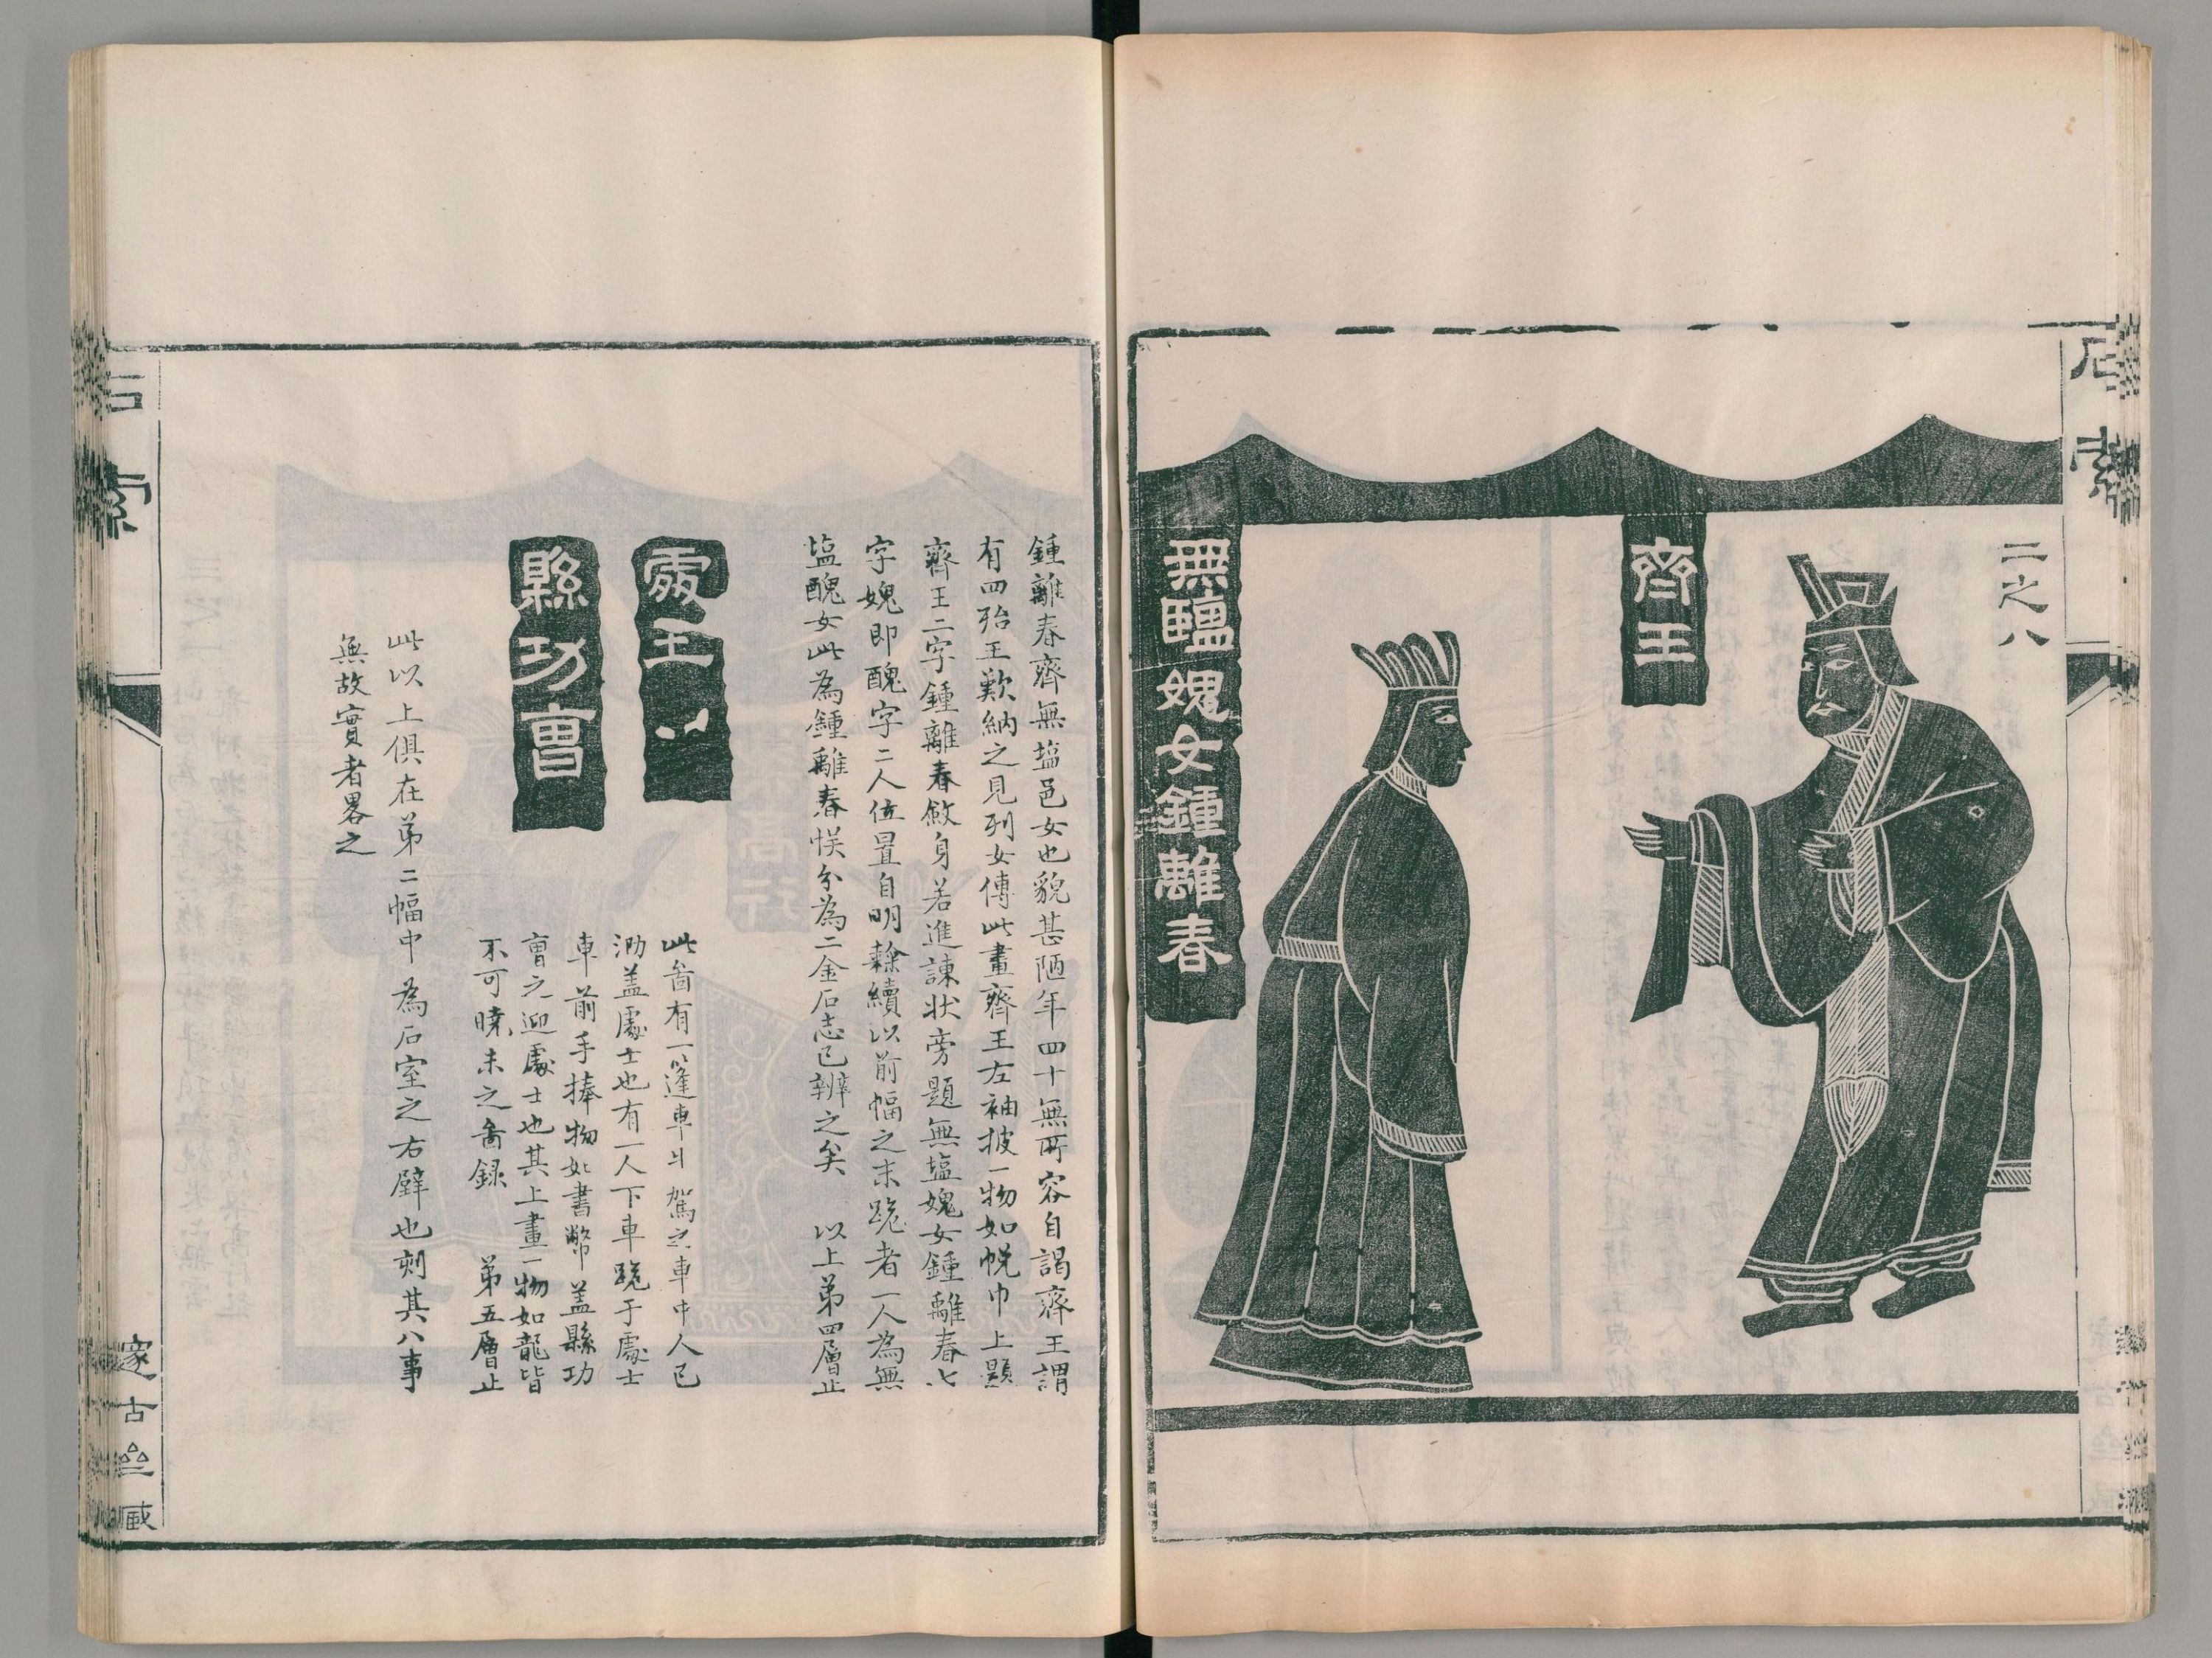 石索
二之八
齊王
無䀋媿女鍾離春
鍾離春齊無塩邑女也貌甚陋年四十無所容自謁齊王謂
有四殆王歎納之見列女傳此畫齊王左袖披一物如帨巾上題
齊王二字鍾離春斂身若進諫狀旁題無塩媿女鍾離春七
字媿即醜字二人位置自明隸續以前幅之末跪者一人為無
塩醜女此為鍾離春悮分為二金石志已辨之矣 以上弟四層止
縣功曹
此啚有一篷車斗駕之車中人已
泐盖處士也有一人下車跪于處士
車前手捧物如書幣盖縣功
曹之迎處士也其上畫一物如龍皆
不可曉未之啚録 弟五層止
此以上俱在弟二幅中為石室之右壁也刻其八事
無故實者畧之
石索
邃古坐臧